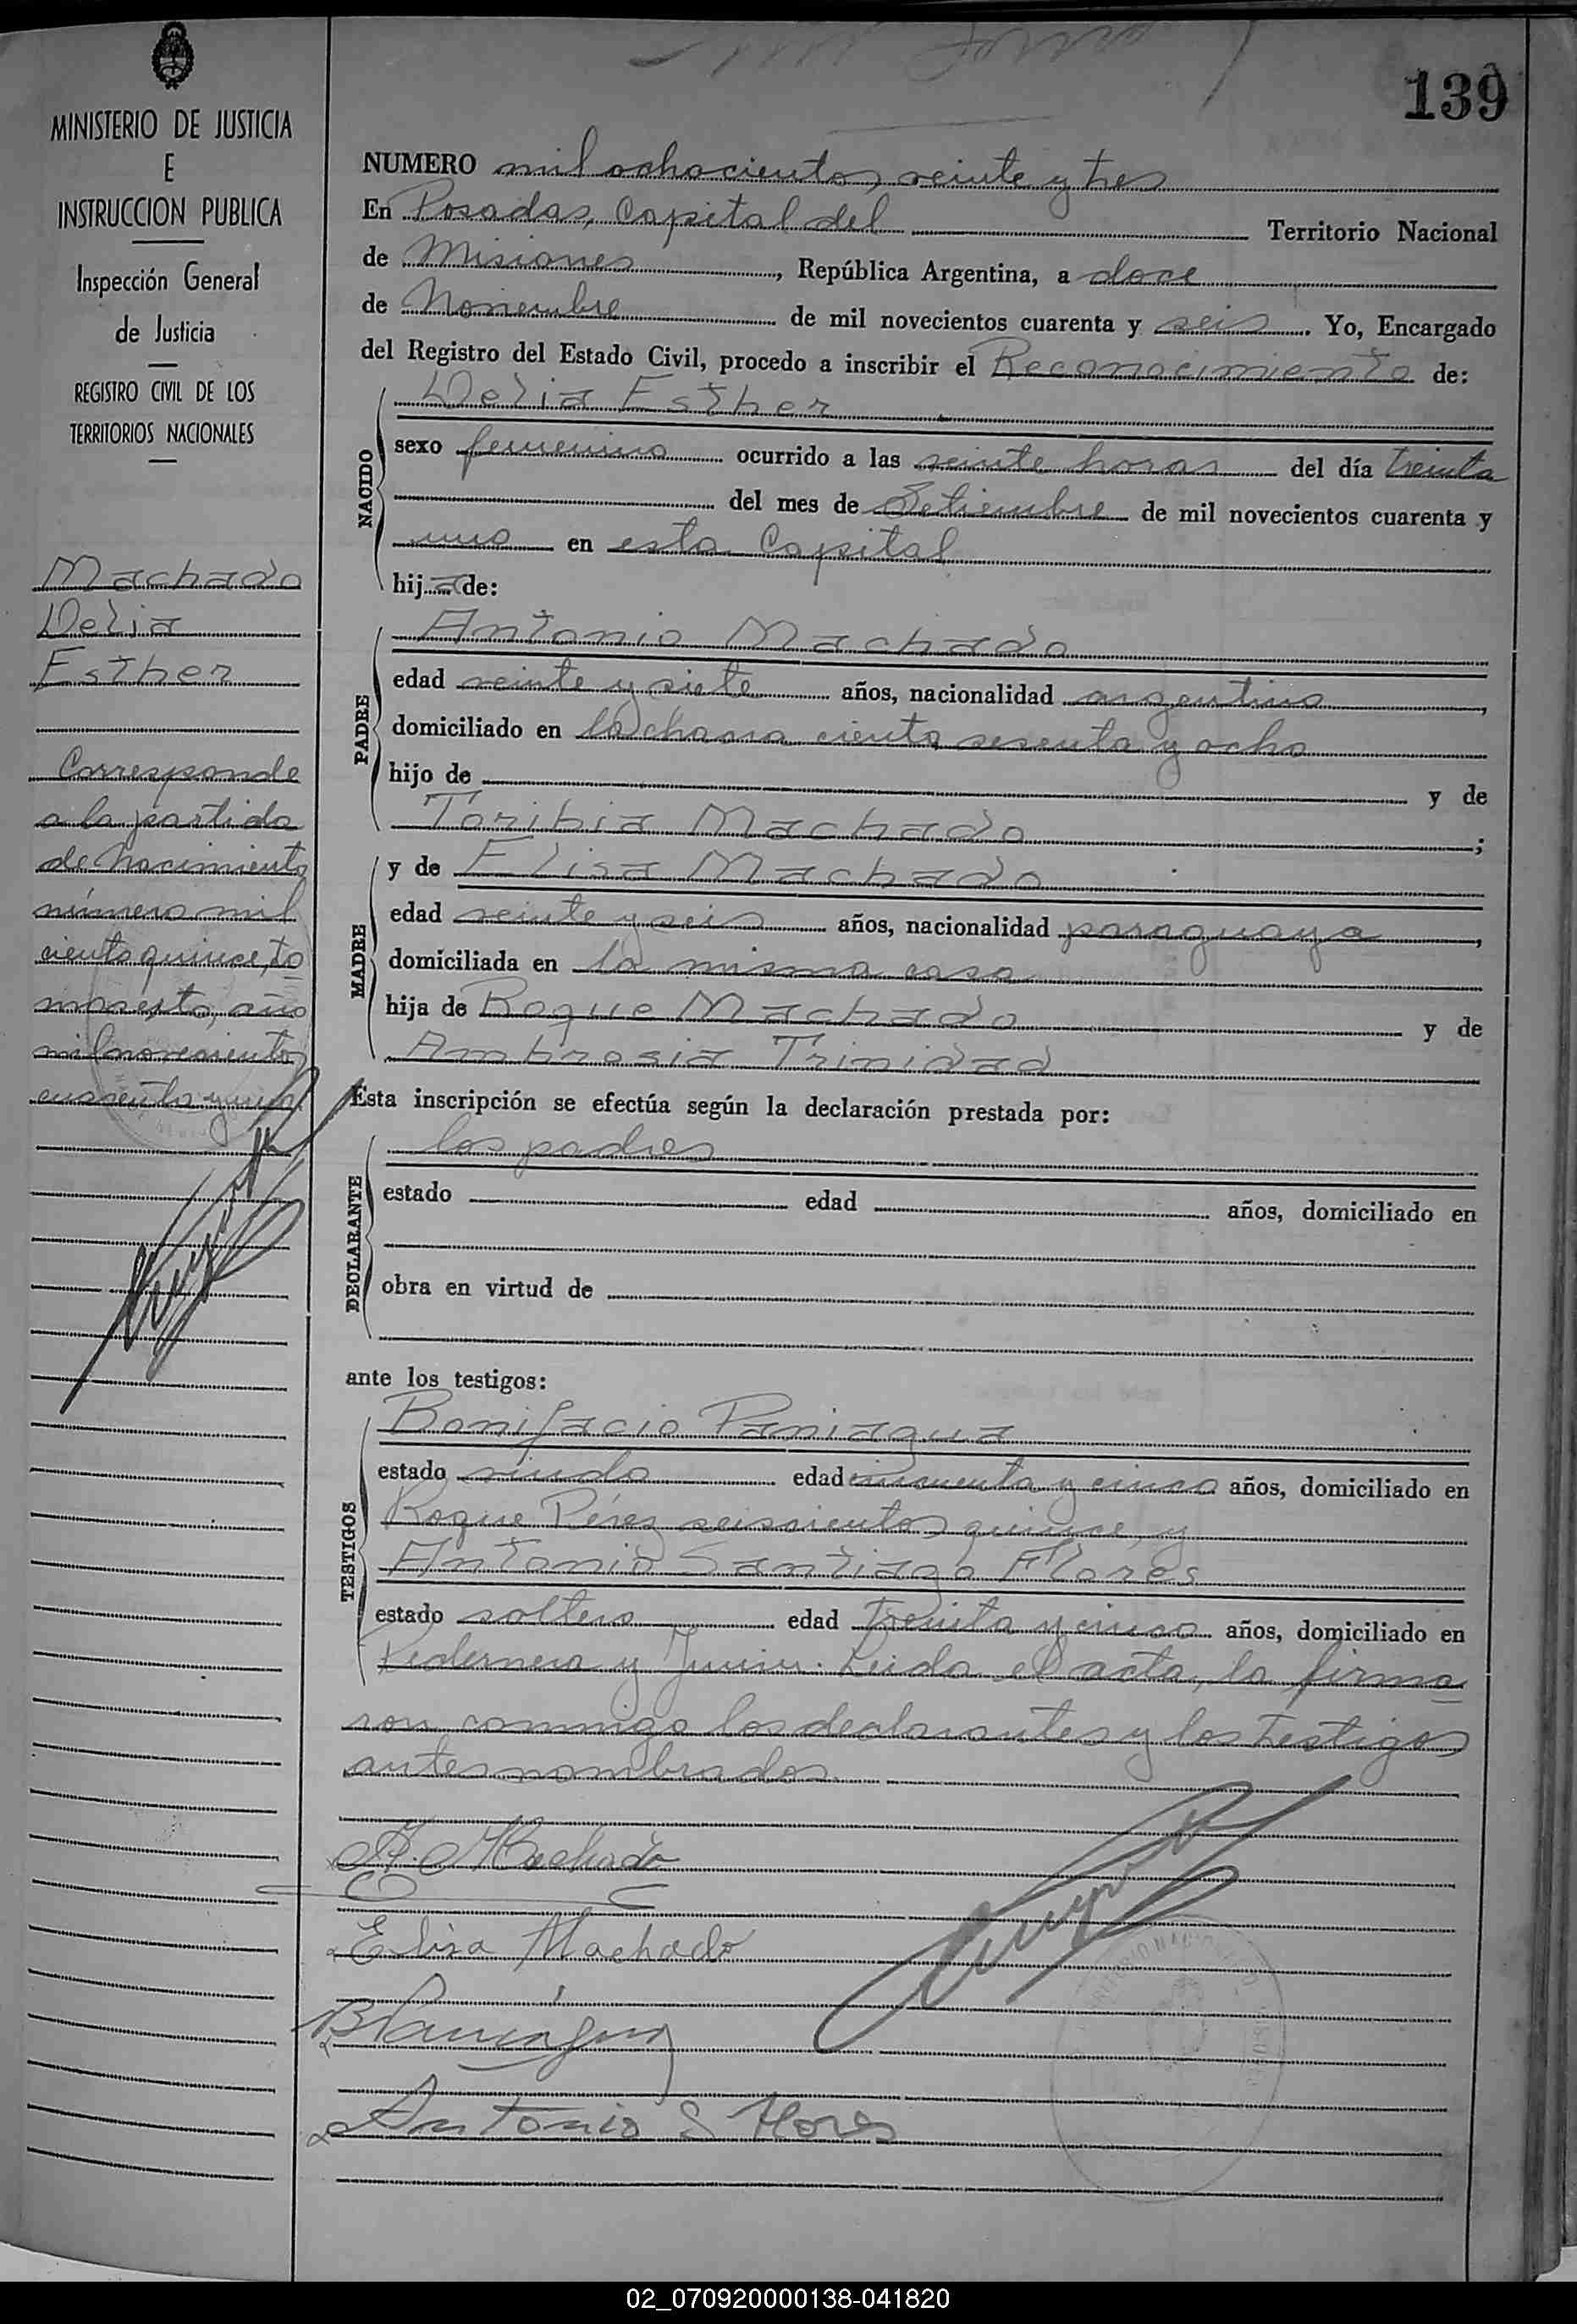 139
MINISTERIO DE JUSTICIA
E
INSTRUCCION PUBLICA
Inspección General
de Justicia
REGISTRO CIVIL DE LOS
TERRITORIOS NACIONALES
Machado
Delia
Esther
Corresponde
a la partida
de nacimiento
número mil
ciento quince, to
mo sexto, año
mil novecientos
cuarenta y uno
NUMERO mil ochocientos veinte y tres
En Posadas, Capital del Territorio Nacional
de Misiones, República Argentina, a doce
de Noviembre de mil novecientos cuarenta y seis. Yo, Encargado
del Registro del Estado Civil, procedo a inscribir el Reconocimiento de:
NACIDO
Delia Esther
sexo femenino ocurrido a las veinte horas del día treinta
del mes de Setiembre de mil novecientos cuarenta y
uno en esta Capital
hija de:
PADRE
Antonio Machado
edad veinte y siete años, nacionalidad argentino,
domiciliado en la chacra ciento sesenta y ocho
hijo de y de
Toribia Machado;
MADRE
y de Elisa Machado
edad veinte y seis años, nacionalidad paraguaya,
domiciliada en la misma casa
hija de Roque Machado y de
Ambrosia Trinidad
Esta inscripción se efectúa según la declaración prestada por:
DECLARANTE
los padres
estado edad años, domiciliado en
obra en virtud de
ante los testigos:
TESTIGOS
Bonifacio Paniagua
estado viudo edad cincuenta y cinco años, domiciliado en
Roque Pérez seiscientos quince, y
Antonio Santiago Flores
estado soltero edad treinta y cinco años, domiciliado en
Pedernera y Junin. Leida el acta, la firma
ron conmigo los declarantes y los testigos
antes nombrados.
A. Machado
Elisa Machado
B Paniagua
Antonio S Flores
02_070920000138-041820